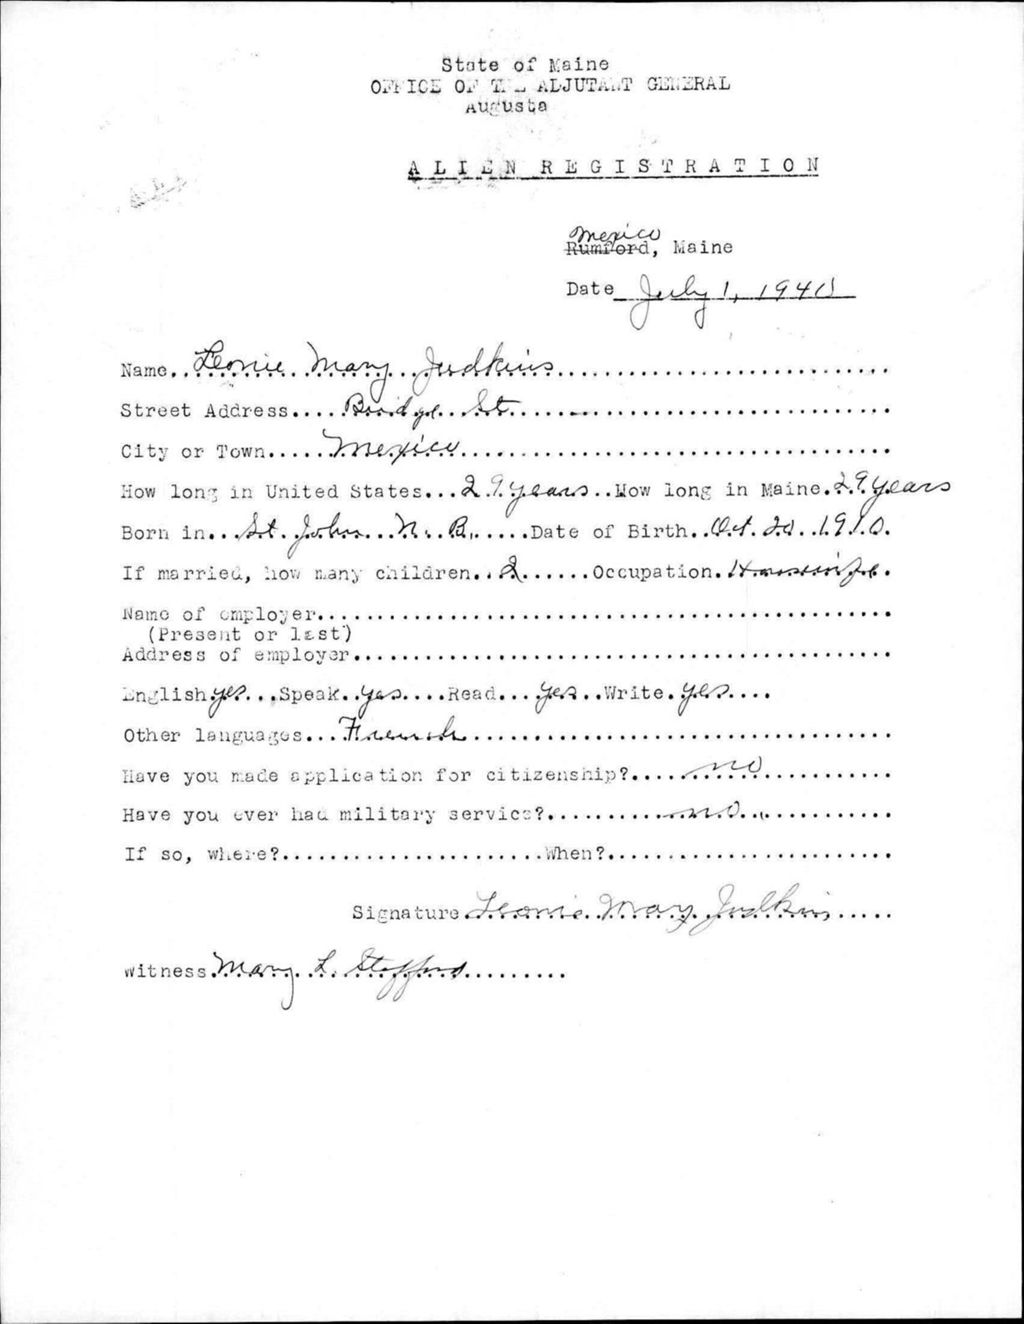 State of Maine
OFFICE OF THE ADJUTANT GENERAL
Augusta
ALIEN REGISTRATION
Mexico
Rumford, Maine
Date July 1, 1940
Name..Leonie Mary Judkins
Street Address....Bridge St.
City or Town......Mexico
How long in United States...29 years..How long in Maine.29 years
Born in...St. John N. B......Date of Birth..Oct. 20 1910.
If married, how many children..2......Occupation.Housewife.
Name of employer
(Present or last)
Address of employer
English yes...Speak..yes....Read...yes..Write.yes....
Other languages...French
Have you made application for citizenship?.....no
Have you ever had military service?.....no
If so, where?......................When?
Signature Leonie Mary Judkins
Witness Mary L. Stafford